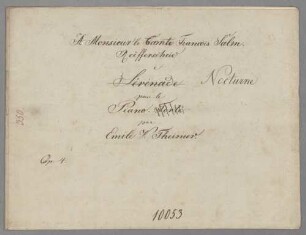 A Monsieur le Comte François Salm
Reifferscheid
à
Sérénade Nocturne
pour le
Piano
par
Emile Thumer
Op. 4
350
10053